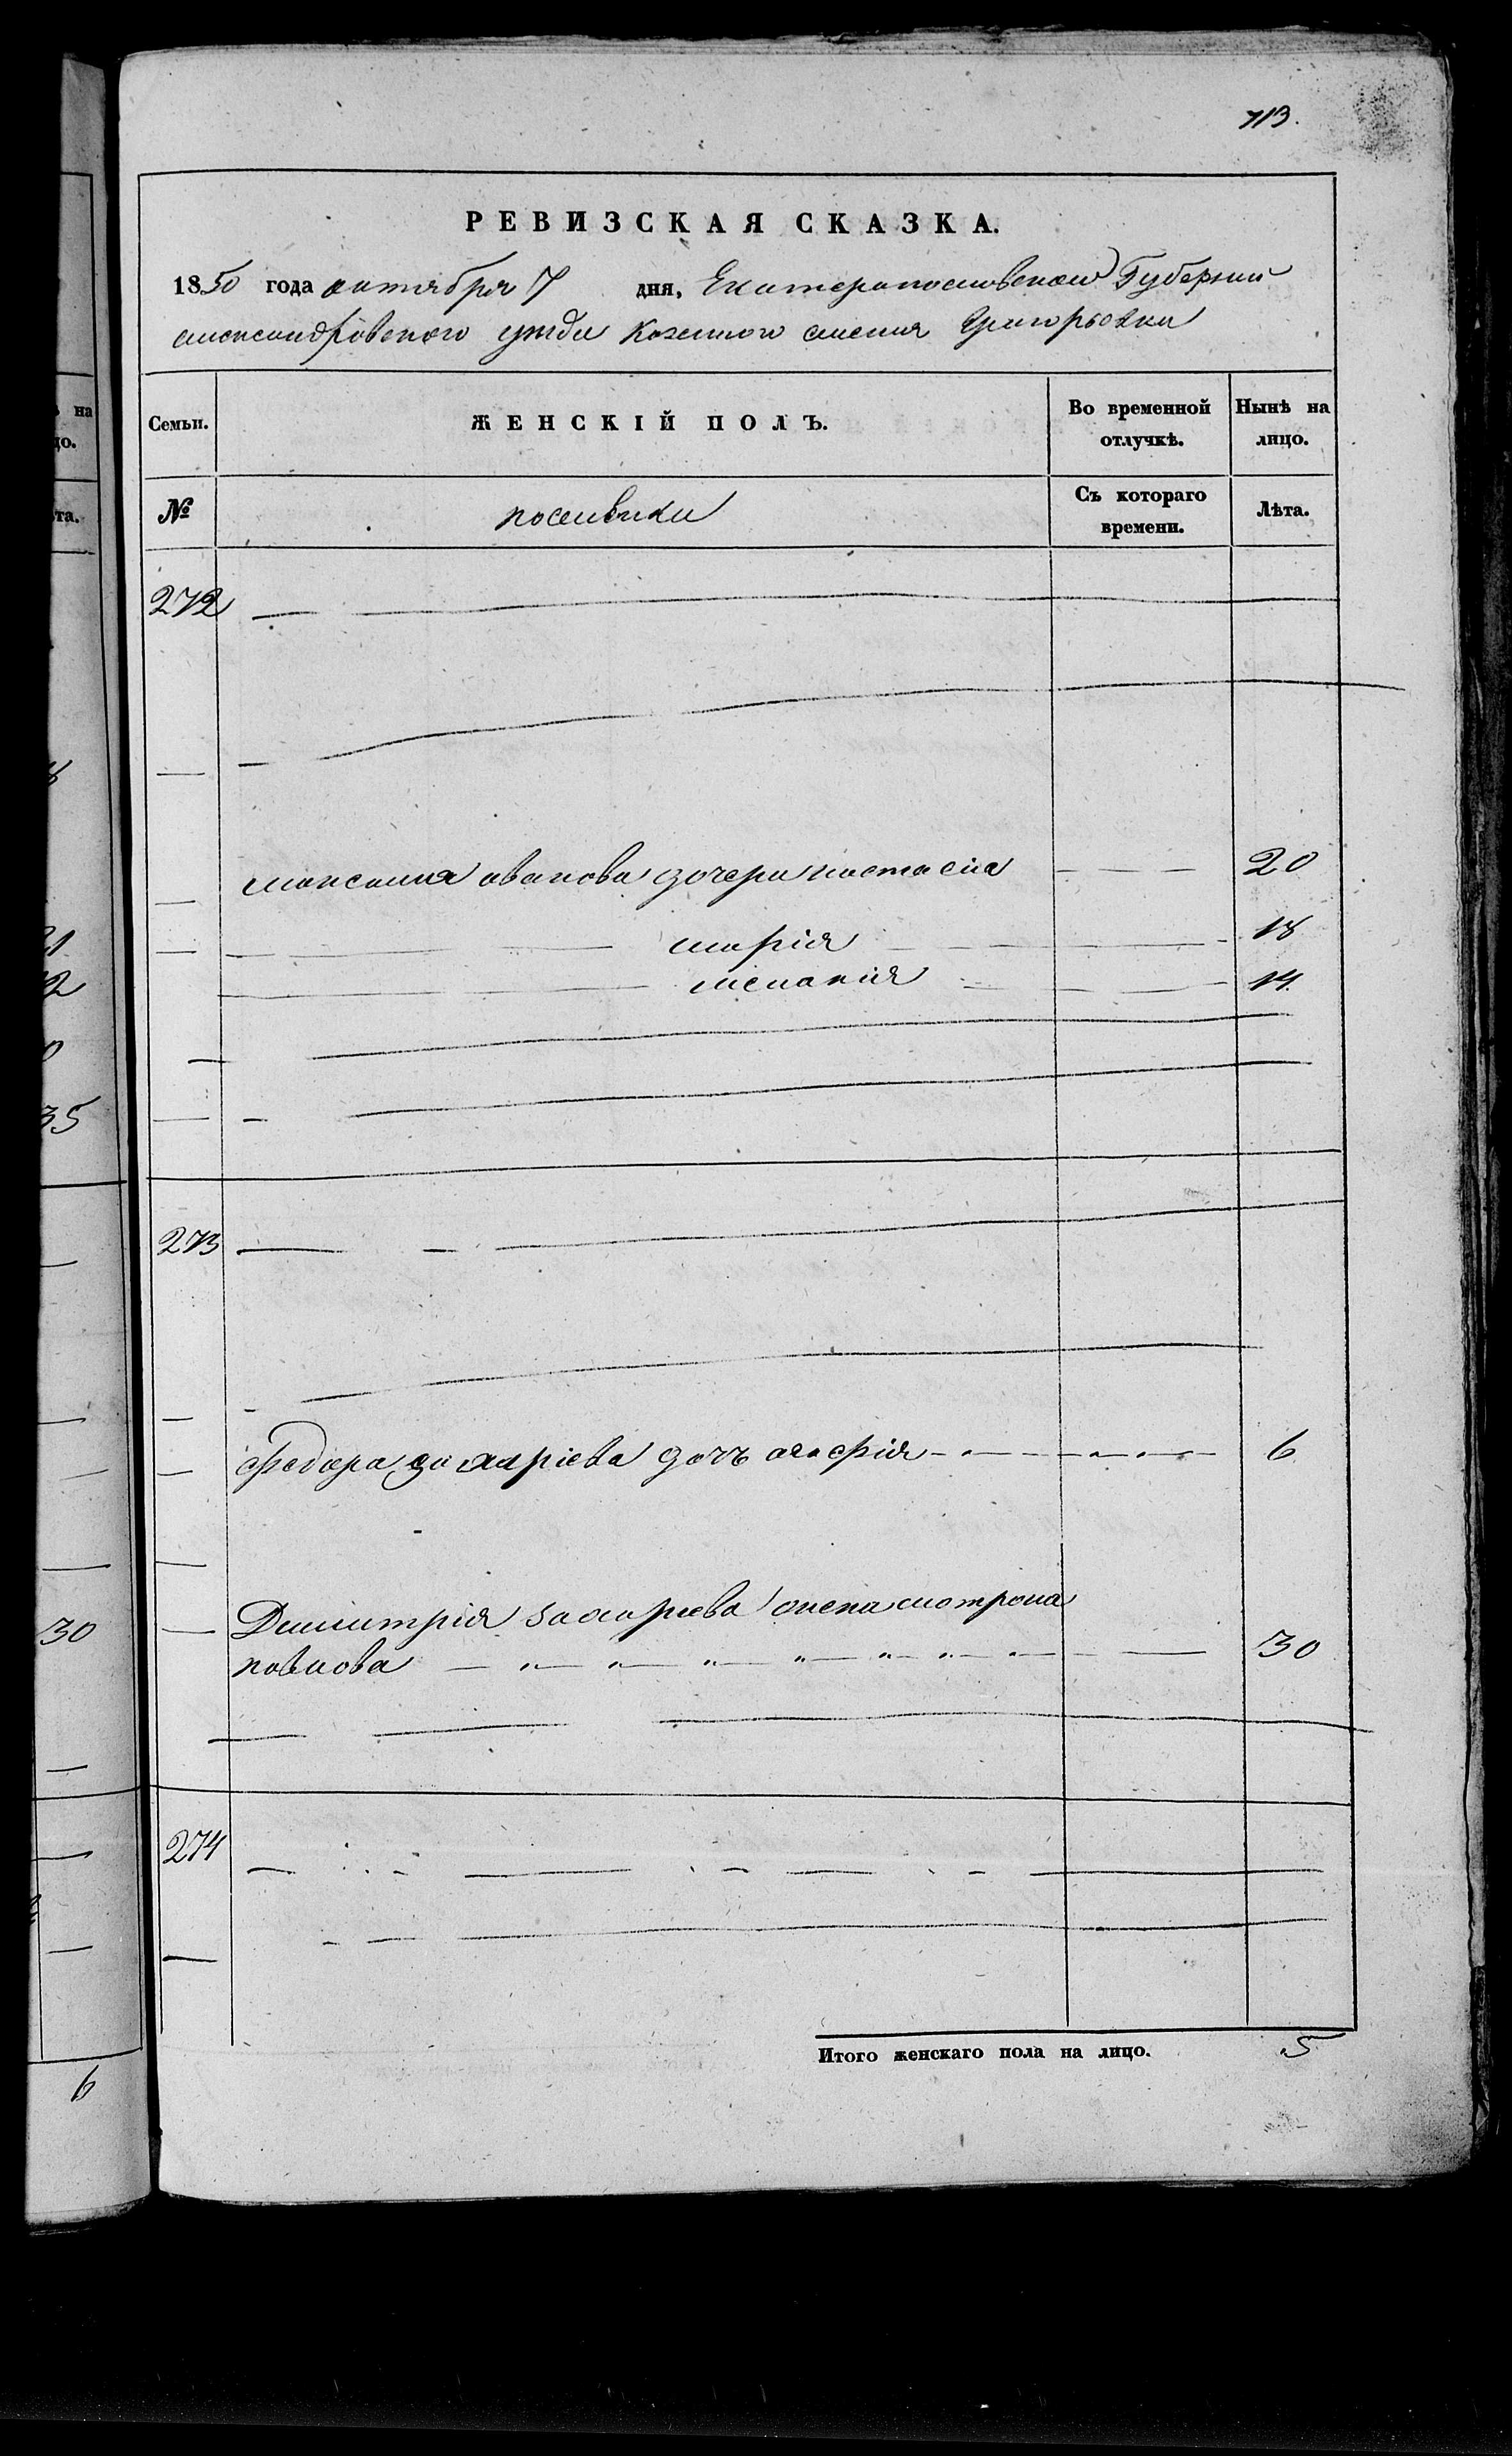 713.
РЕВИЗСКАЯ СКАЗКА.
1850 года октября 7 дня, Екатеринославской Губернии
александровского уезда Казенного селения Григорьовки
Семьи. ЖЕНСКІЙ ПОЛЪ. Во временной отлучкѣ. Нынѣ на лицо.
№ Съ котораго времени. Лѣта.
272
максима иванова дочери настасиа 20
марія 18
меланія 14
273
федора захаріева дочъ агафія 6
Димитрія захариева жена мотрона
павлова 30
274
Итого женскаго пола на лицо. 5
на
цо.
та.
21
12
0
35
30
6